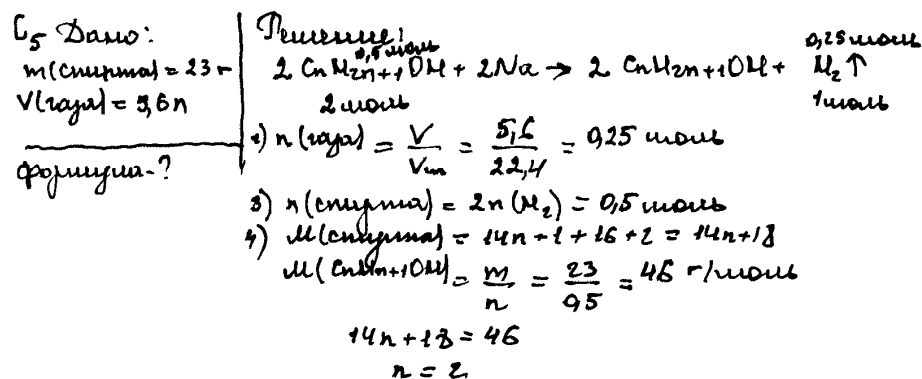 C5 Дано:
m(спирта) = 23 г
V(газа) = 5,6л
формула-?
Решение:
0,5 моль 0,25 моль
2 CnH2n+1OH + 2Na → 2 CnH2n+1OH + H2↑
2 моль 1 моль
2) n(газа) = V/Vm = 5,6/22,4 = 0,25 моль
3) n(спирта) = 2n(H2) = 0,5 моль
4) M(спирта) = 14n + 1 + 16 + 1 = 14n+18
M(CnHn+1OH) = m/n = 23/0,5 = 46 г/моль
14n + 18 = 46
n = 2